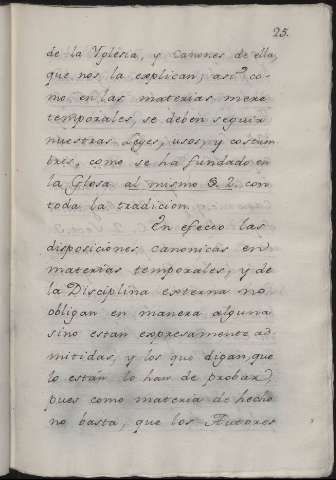 25.
de la Yglesia, y canones de ella,
que nos la explican; asi co-
mo en las materias mere
temporales, se deben seguir
nuestras Leyes, usos, y costum
bres, como se ha fundado en
la Glosa al mismo §. 2. con
toda la tradicion.
En efecto las
disposiciones canonicas en
materias temporales, y de
la Disciplina externa no
obligan en manera alguna
sino estan expresamente ad-
mitidas, y los que digan, que
lo están lo han de probar,
pues como materia de hecho
no basta, que los Autores